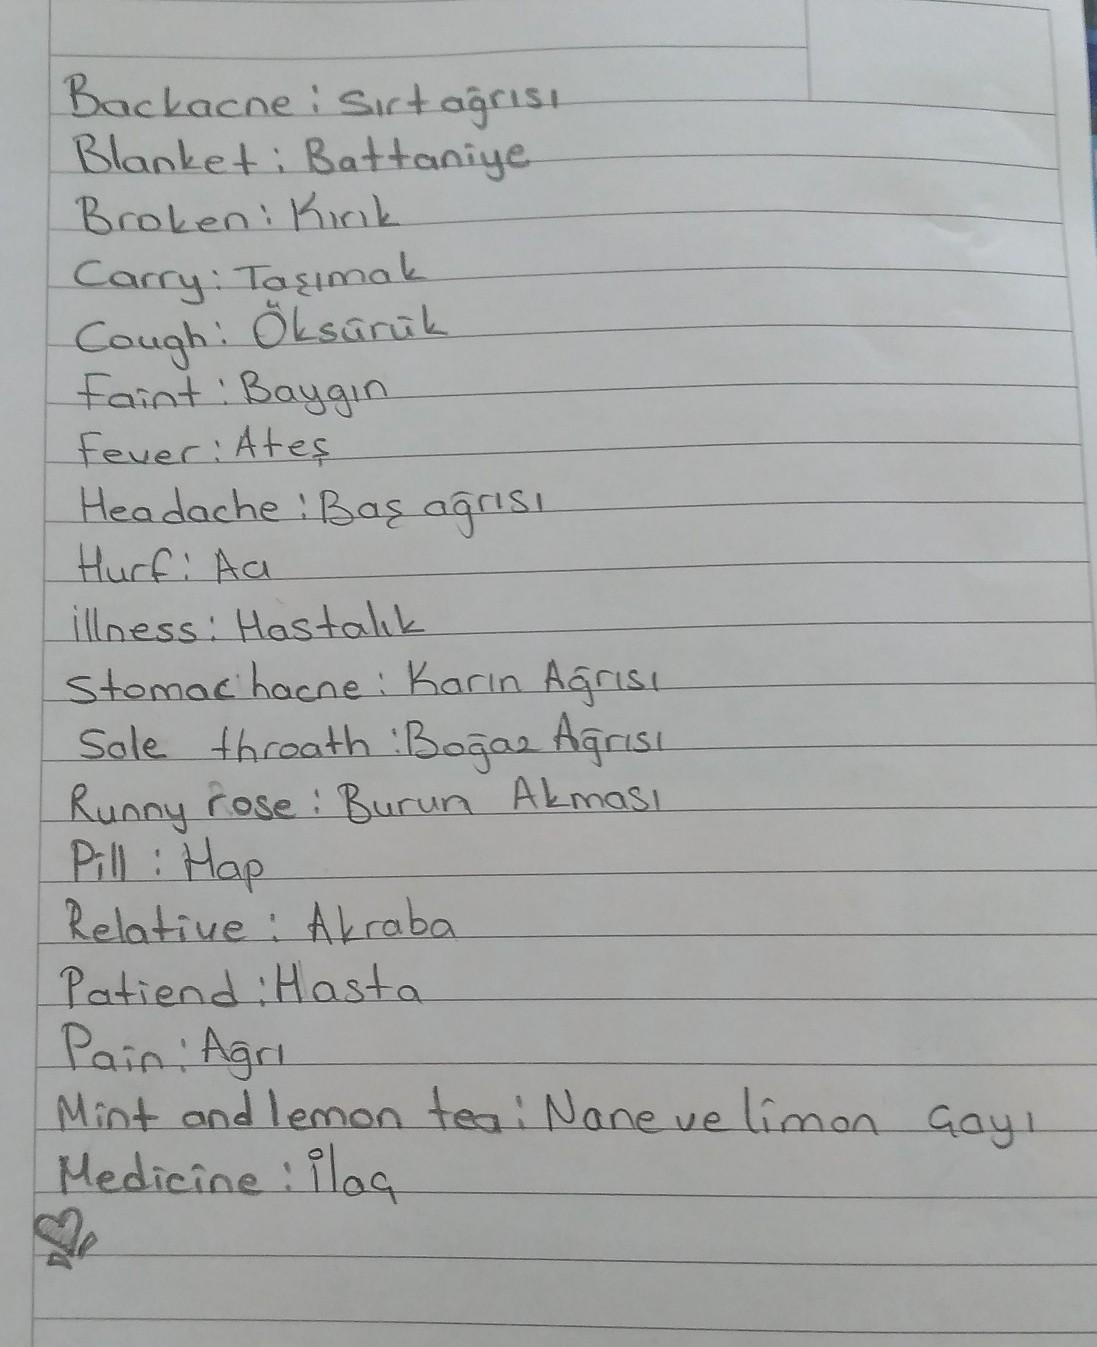 Backacne: Sırt ağrısı
Blanket: Battaniye
Broken: Kırık
Carry: Taşımak
Cough: Öksürük
Faint: Baygın
Fever: Ateş
Headache: Baş ağrısı
Hurf: Acı
illness: Hastalık
Stomac hacne: Karın Ağrısı
Sole throath: Boğaz Ağrısı
Runny rose: Burun Akması
Pill: Hap
Relative: Akraba
Patiend: Hasta
Pain: Ağrı
Mint and lemon tea: Nane ve limon Çayı
Medicine: İlaç